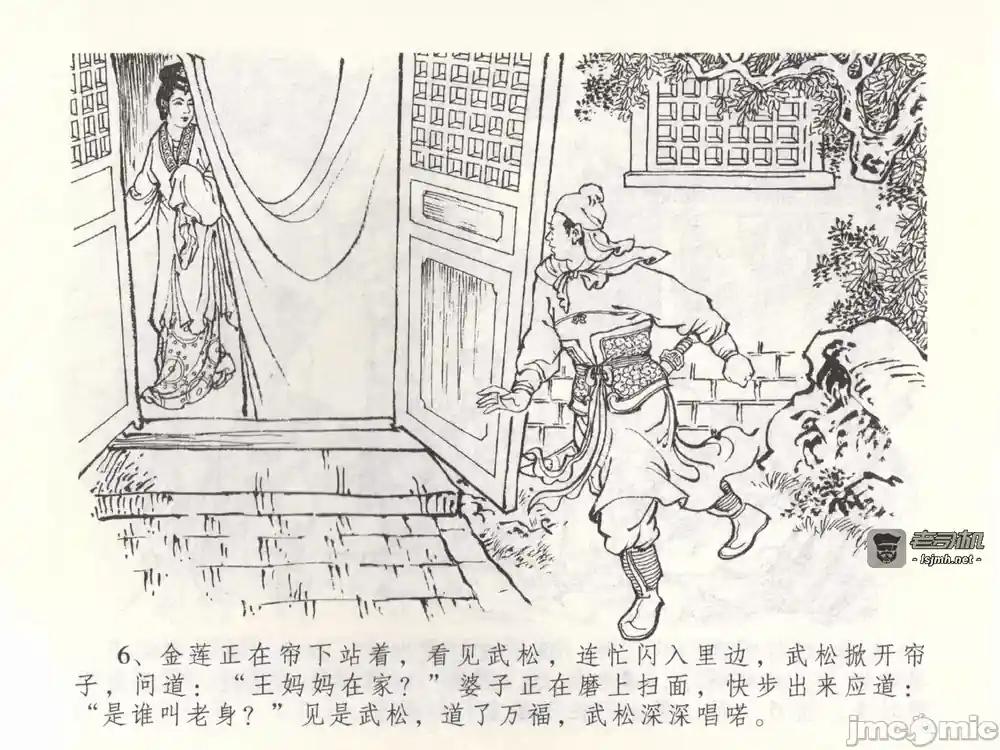 老司机
- lsjmh.net -
6、金莲正在帘下站着，看见武松，连忙闪入里边，武松掀开帘
子，问道：“王妈妈在家？”婆子正在磨上扫面，快步出来应道：
“是谁叫老身？”见是武松，道了万福，武松深深唱喏。
jmcomic